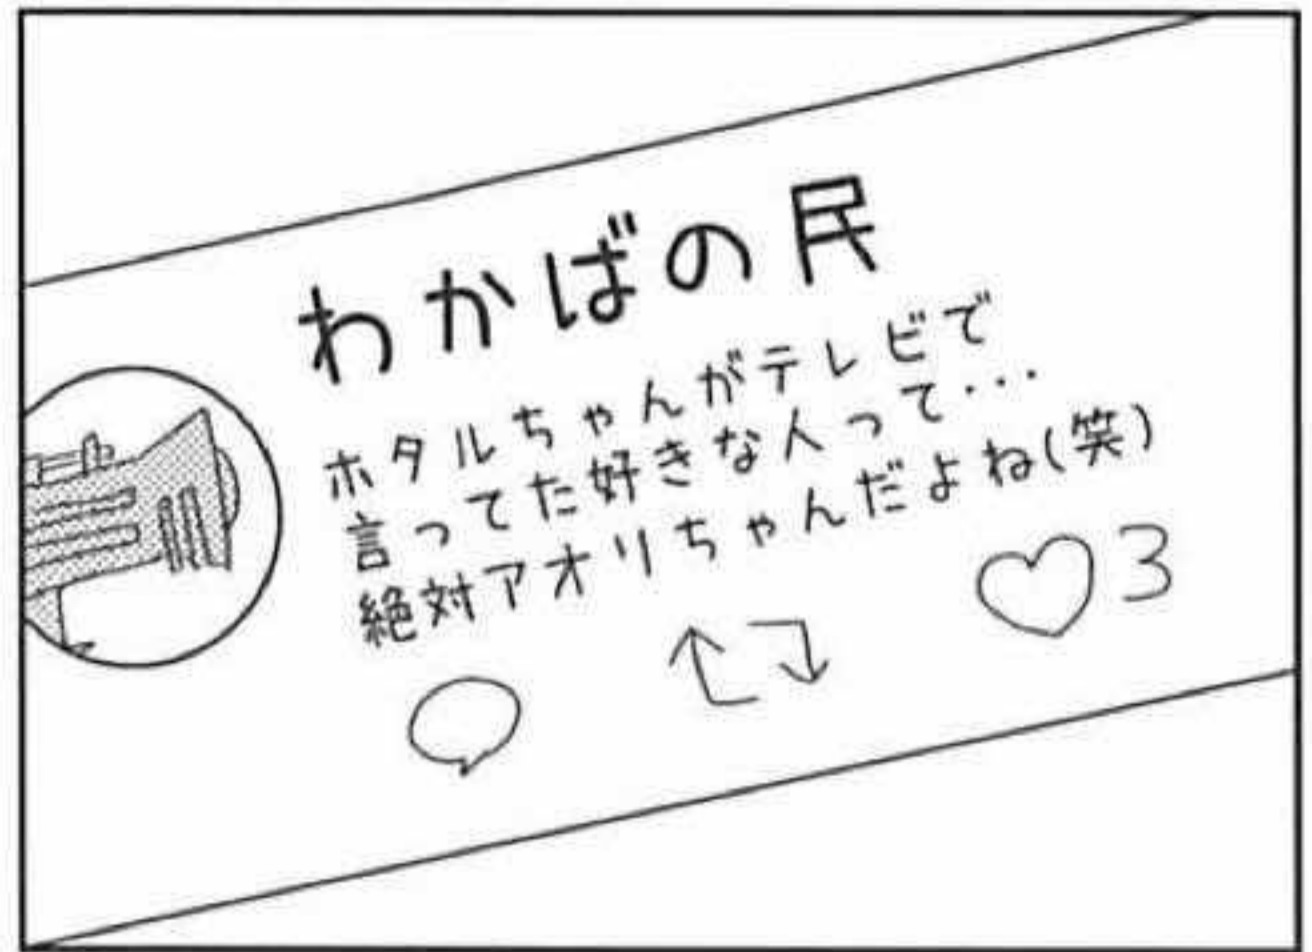 わかばの民
ホタルちゃんがテレビで
言ってた好きな人って…
絶対アオリちゃんだよね(笑)
3